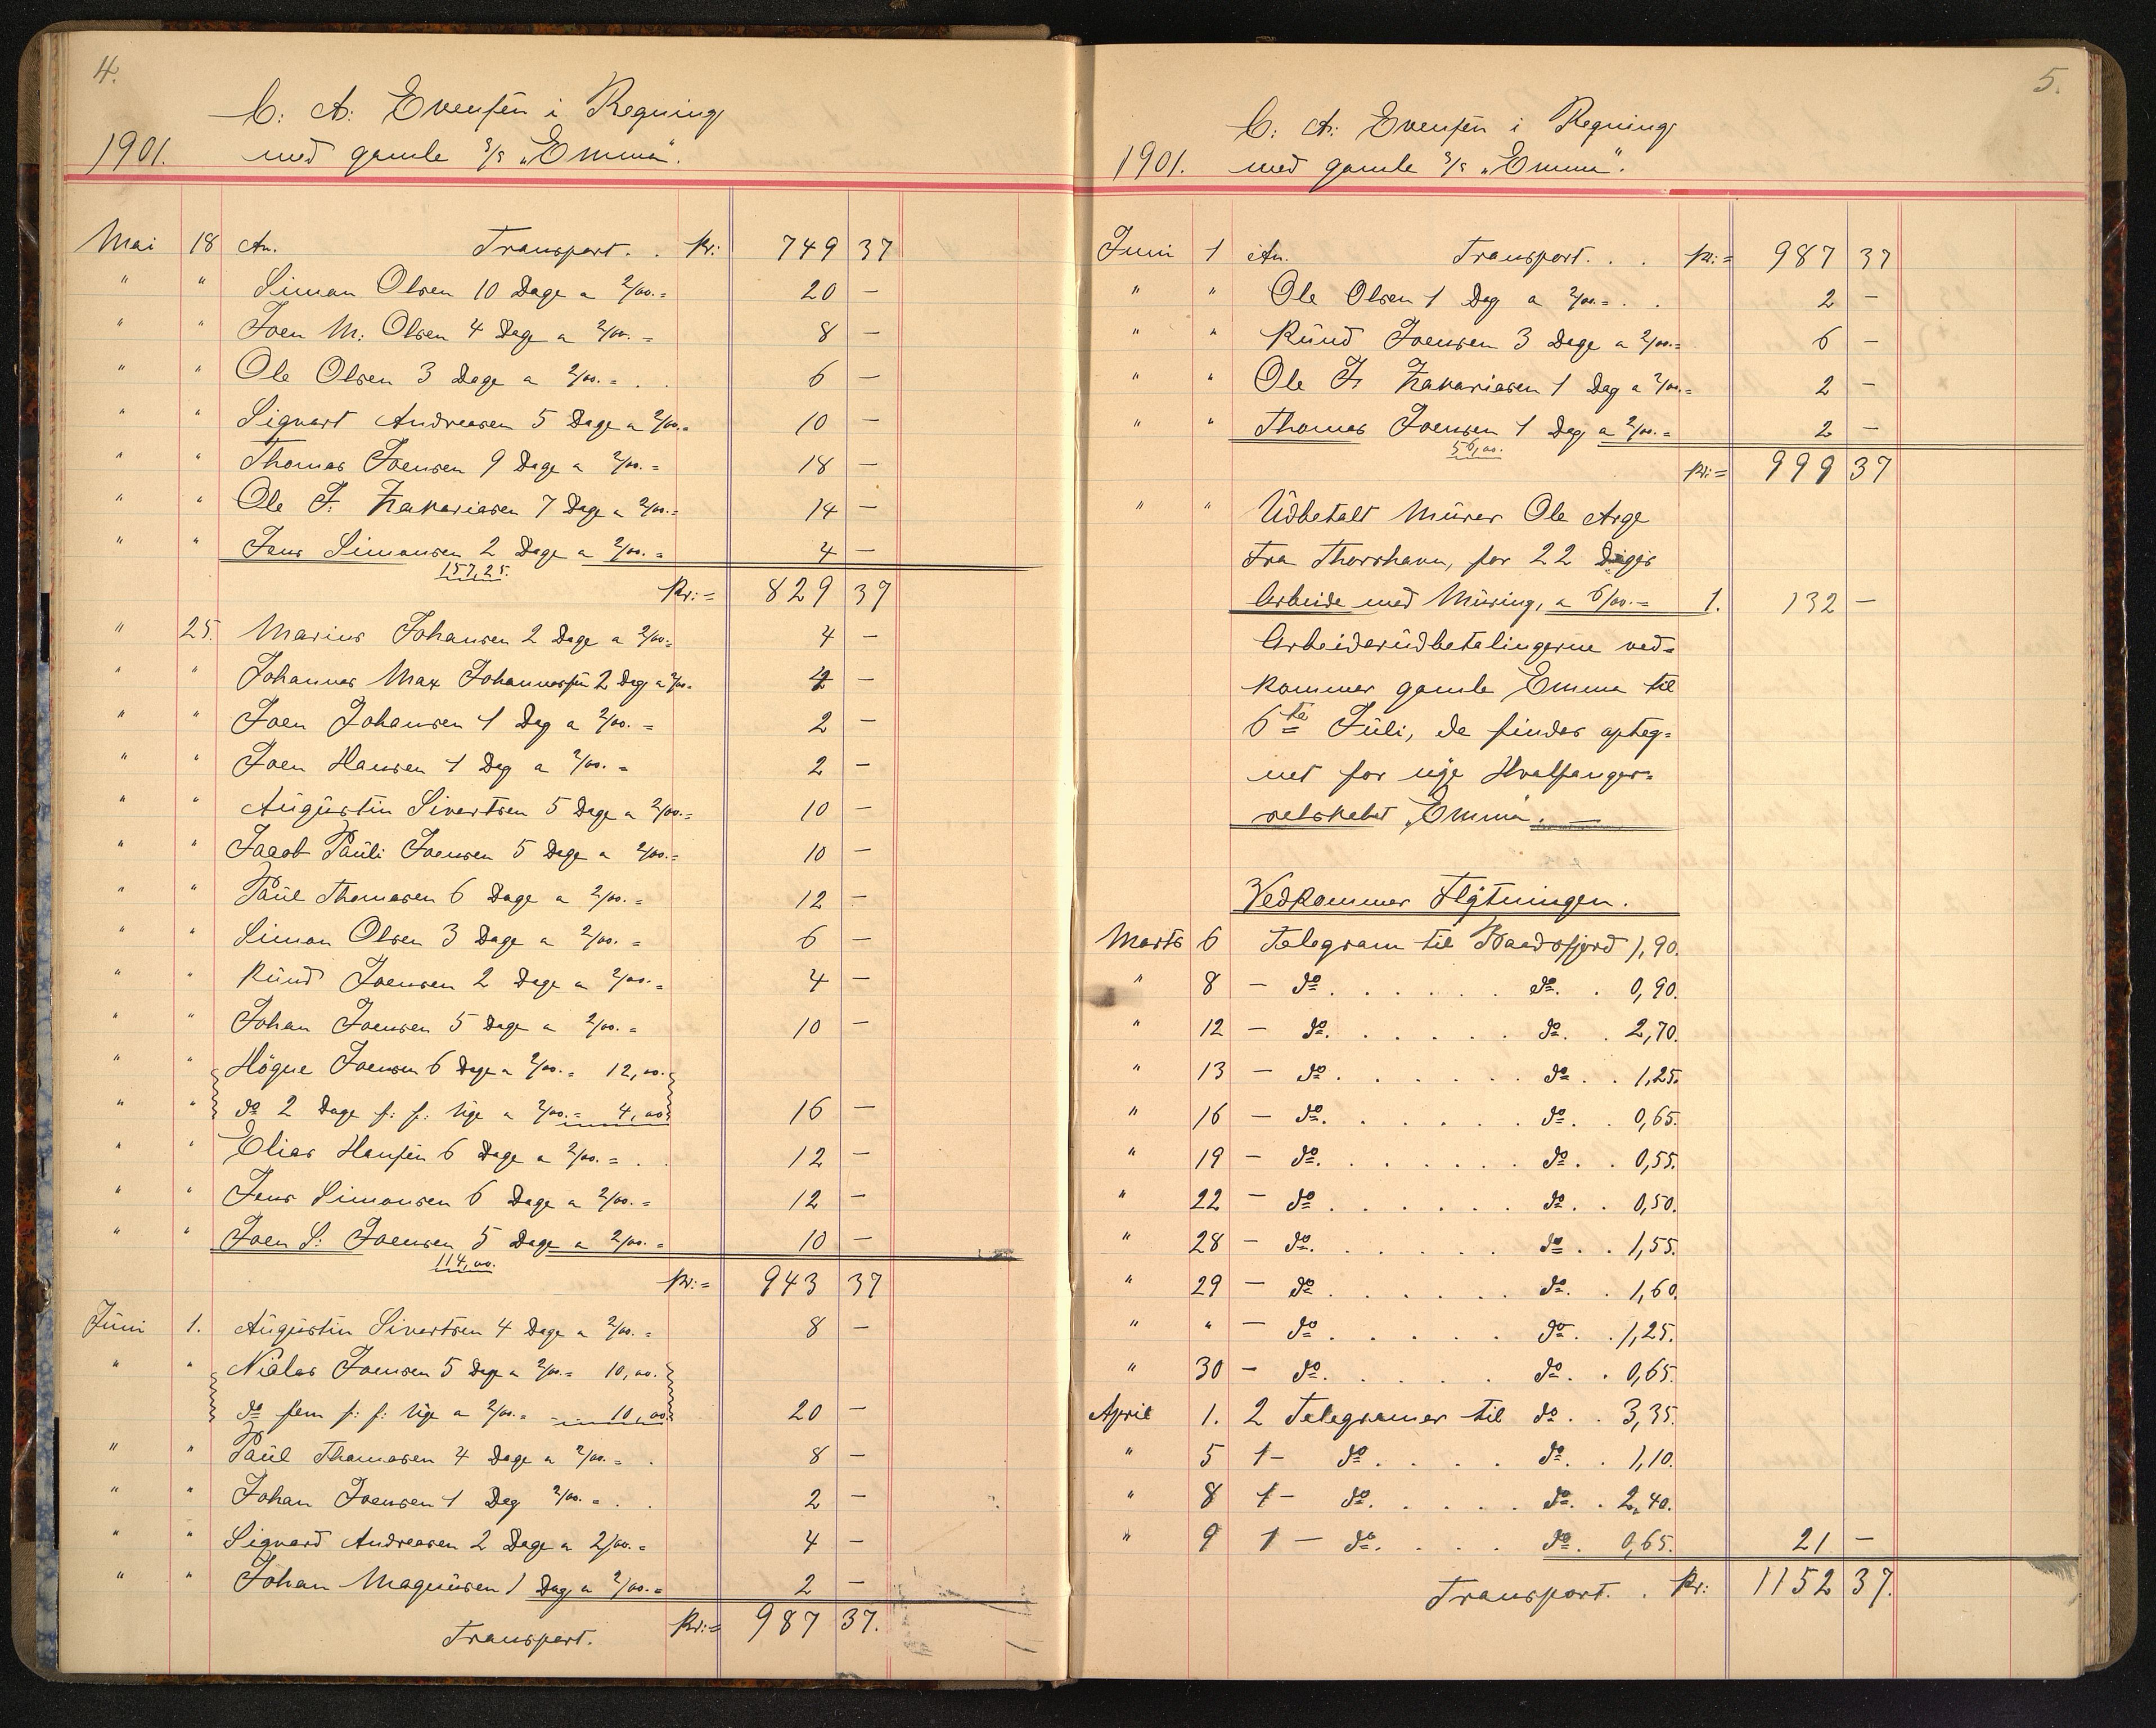 4.
C: A: Evensen i Regning
1901. med gamle S/S "Emma".
Mai 18 An. Transport. . Kr: 749 37
" " Simon Olsen 10 Dage a 2/00.= 20 —
" " Joen M: Olsen 4 Dage a 2/00. = 8 —
" " Ole Olsen 3 Dage a 2/00. = . . 6 —
" " Sigvart Andreasen 5 Dage a 2/00.= 10 —
" " Thomas Joensen 9 Dage a 2/00. = 18 —
" " Ole J. Zakariasen 7 Dage a 2/00.= 14 —
" " Jens Simonsen 2 Dage a 2/00. = 4 —
157,25.
Kr:= 829 37
" 25. Marius Johansen 2 Dage a 2/00.= 4 —
" " Johannes Max Johannesen 2 Dag a 2/00.= 4 —
" " Joen Johansen 1 Dag a 2/00. = 2 —
" " Joen Hansen 1 Dag a 2/00. = 2 —
" " Augustin Sivertsen 5 Dage a 2/00.= 10 —
" " Jacob Pauli Joensen 5 Dage a 2/00.= 10 —
" " Paul Thomasen 6 Dage a 2/00. = 12 —
" " Simon Olsen 3 Dage a 2/00. = 6 —
" " Kund Joensen 2 Dage a 2/00. = 4 —
" " Johan Joensen 5 Dage a 2/00. = 10 —
" " Högne Joensen 6 Dage a 2/00. = 12,00.
" " do 2 Dage f: f: Uge a 2/00.= 4,00. 16 —
" " Elias Hansen 6 Dage a 2/00. = . . 12 —
" " Jens Simonsen 6 Dage a 2/00. = 12 —
" " Joen S: Joensen 5 Dage a 2/00. = 10 —
114,00.
Kr:= 943 37
Juni 1. Augustin Sivertsen 4 Dage a 2/00. = 8 —
" " Niclas Joensen 5 Dage a 2/00.= 10,00.
do fem f: f: Uge a 2/00. = 10,00. 20 —
" " Paul Thomasen 4 Dage a 2/00. = . 8 —
" " Johan Joensen 1 Dag 2/00. = . . 2 —
" " Sigvard Andreasen 2 Dage a 2/00. = 4 —
" " Johan Magnusen 1 Dag a 2/00. = 2 —
Transport. Kr:= 987 37.
5.
C: A: Evensen i Regning
1901. med gamle S/S "Emma".
Juni 1 An. Transport. . . Kr:= 987 37
" " Ole Olsen 1 Dag a 2/00.= . . 2 —
" " Kund Joensen 3 Dage a 2/00.= 6 —
" " Ole J. Zakariasen 1 Dag a 2/00.= 2 —
" " Thomas Joensen 1 Dag a 2/00. = 2 —
56,00.
Kr:= 999 37
" " Udbetalt Murer Ole Arge
fra Thorshavn, for 22 Dages
Arbeide med Muring, a 6/00.= 1. 132 —
Arbeiderudbetalingerne ved=
kommer gamle Emma til
6te Juli, de findes opteg=
net for nye Hvalfanger=
selskabet "Emma". —
Vedkommer Flytningen.
Marts 6 Telegram til Baadsfjord 1,90.
" 8 — do . . . . . do. . 0,90.
" 12 — do. . . . . . do. . 2,70.
" 13 — do . . . . . . do . . 1,25.
" 16 — do. . . . . . do. . 0,65.
" 19 — do. . . . . . do. . 0,55.
" 22 — do . . . . . . do. . 0,50.
" 28 — do. . . . . . do . . 1,55.
" 29 — do . . . . . do. . 1,60.
" " — do . . . . . do. . 1,25.
" 30 — do. . . . . do. . 0,65.
April 1. 2 Telegramer til do . . 3,35.
" 5 1 — do . . . . do. . 1,10.
" 8 1 — do. . . . . do. . 2,40.
" 9 1 — do. . . . do. 0,65. 21 —
Transport. . Kr: 1152 37.